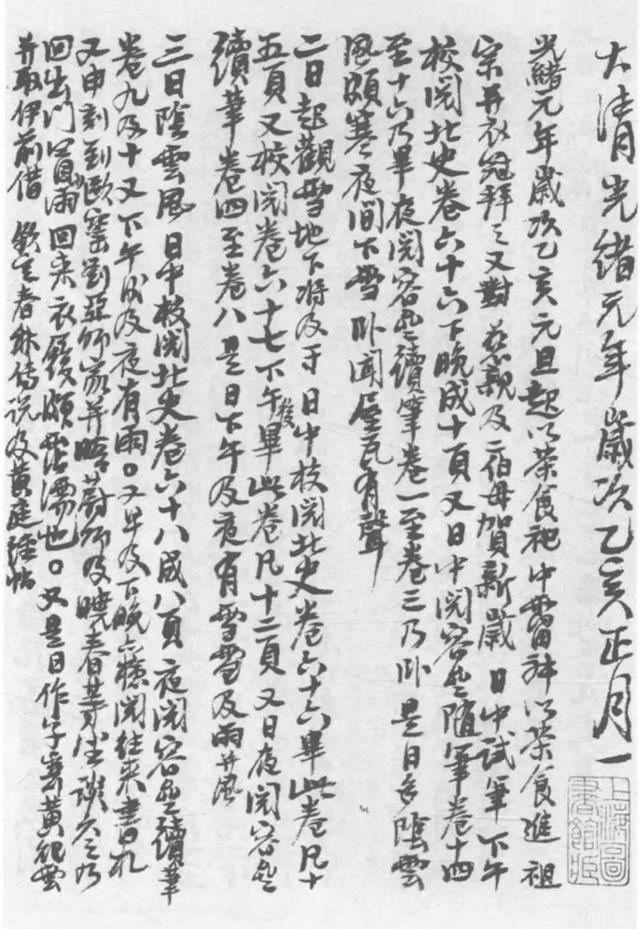 大清光緒元年歲次乙亥正月一
光緒元年歲次乙亥元旦起以茶食祀中霤神以茶食進 祖
宗并衣冠拜之又對 慈親及二伯母賀新歲 日中試筆下午
校閱北史卷六十六下晚成十頁又日中閱容齋隨筆卷十四
至十六乃畢夜閱容齋續筆卷一至卷三乃卧是日多陰雲
風頗寒夜間下雪卧聞屋瓦有聲
二日起觀雪地下將及寸日中校閱北史卷六十六畢此卷凡十
五頁又校閱卷六十七下午後畢此卷凡十二頁又日夜閱容齋
續筆卷四至卷八是日下午及夜有雪雪及雨并風
三日陰雲風日中校閱北史卷六十八成八頁夜閱容齋續筆
卷九及十又下午後及夜有雨。又早及下晚亦檢閱往來書札
又申刻到歐窑劉亞師家并晤蔚師及曉春等坐談久之乃
回出門買酒雨回來衣履頗霑濡也。又是日作字寄黃杞雲
并取伊前借 欽定春秋傳說及黃庭經帖
上海圖書館藏